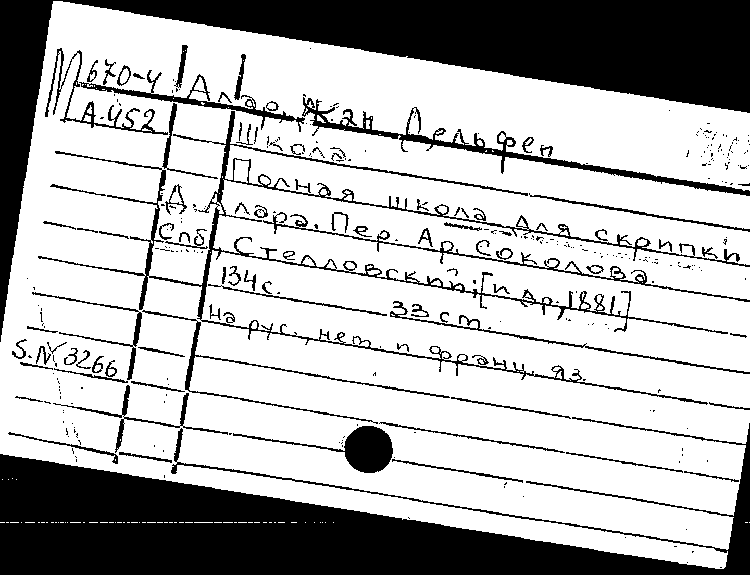 М 670-4
А.452
Алар, Жан Дельфен
Школа.
Полная школа для скрипки
Д. Алара. Пер. Ар. Соколова.
Спб, Стелловский; [п др, 1881.]
134с. 33 ст.
На рус., нем. п франц. яз.
S.N. 3266